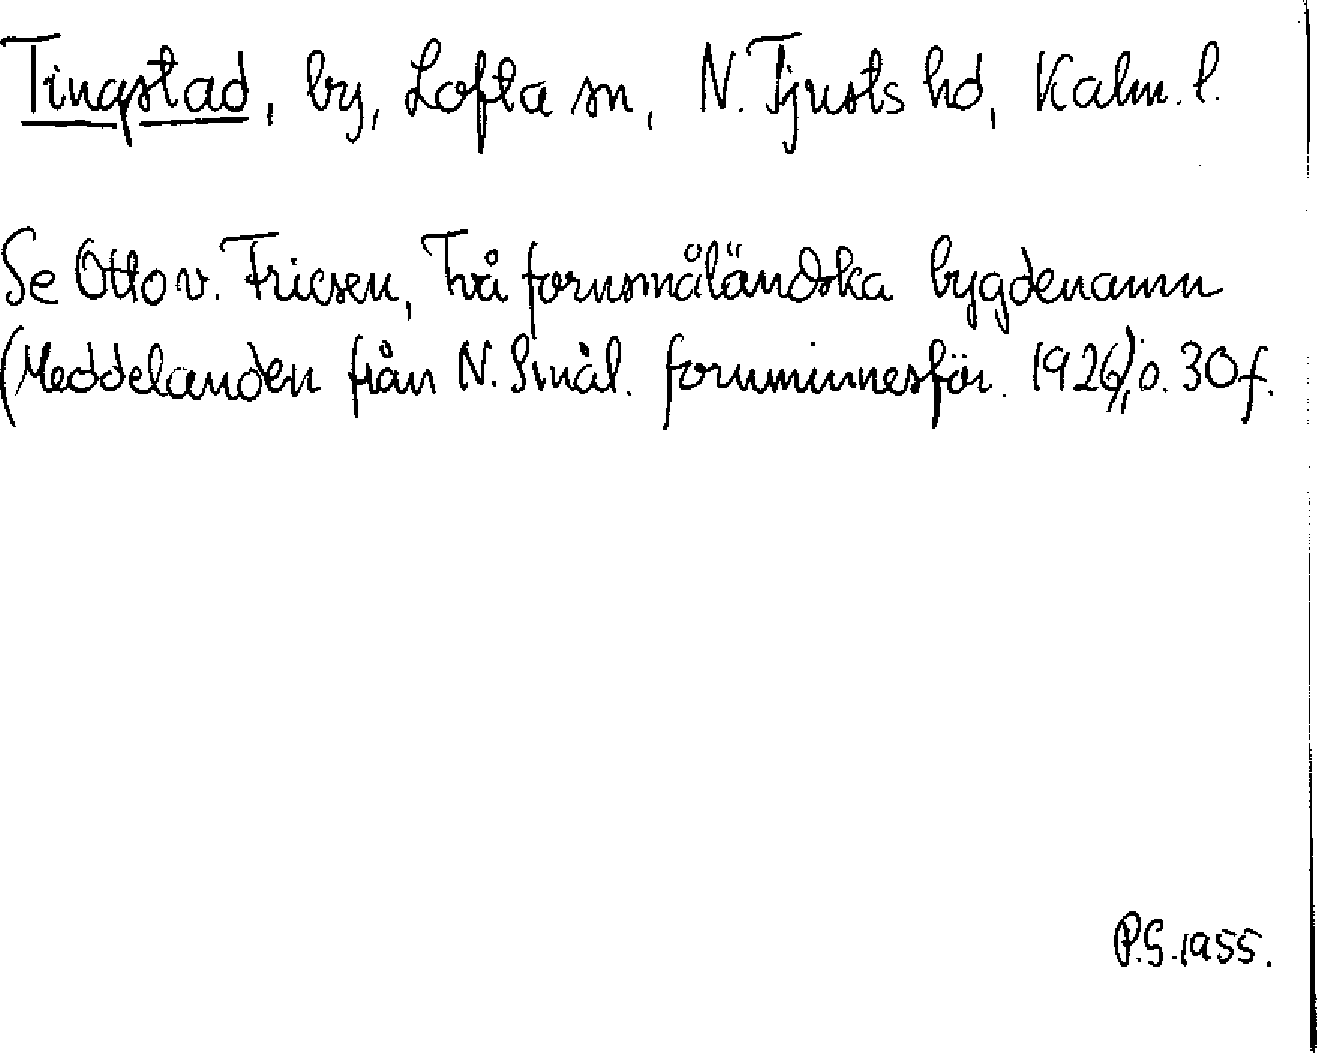 Tingstad, by, Lofta sn, N. Tjusts hd, Kalm. l.
Se Otto v. Friesen, Två fornsmåländska bygdenamn
(Meddelanden från N. Smål. fornminnesför. 1926), s. 30 f.
P.G. 1955.